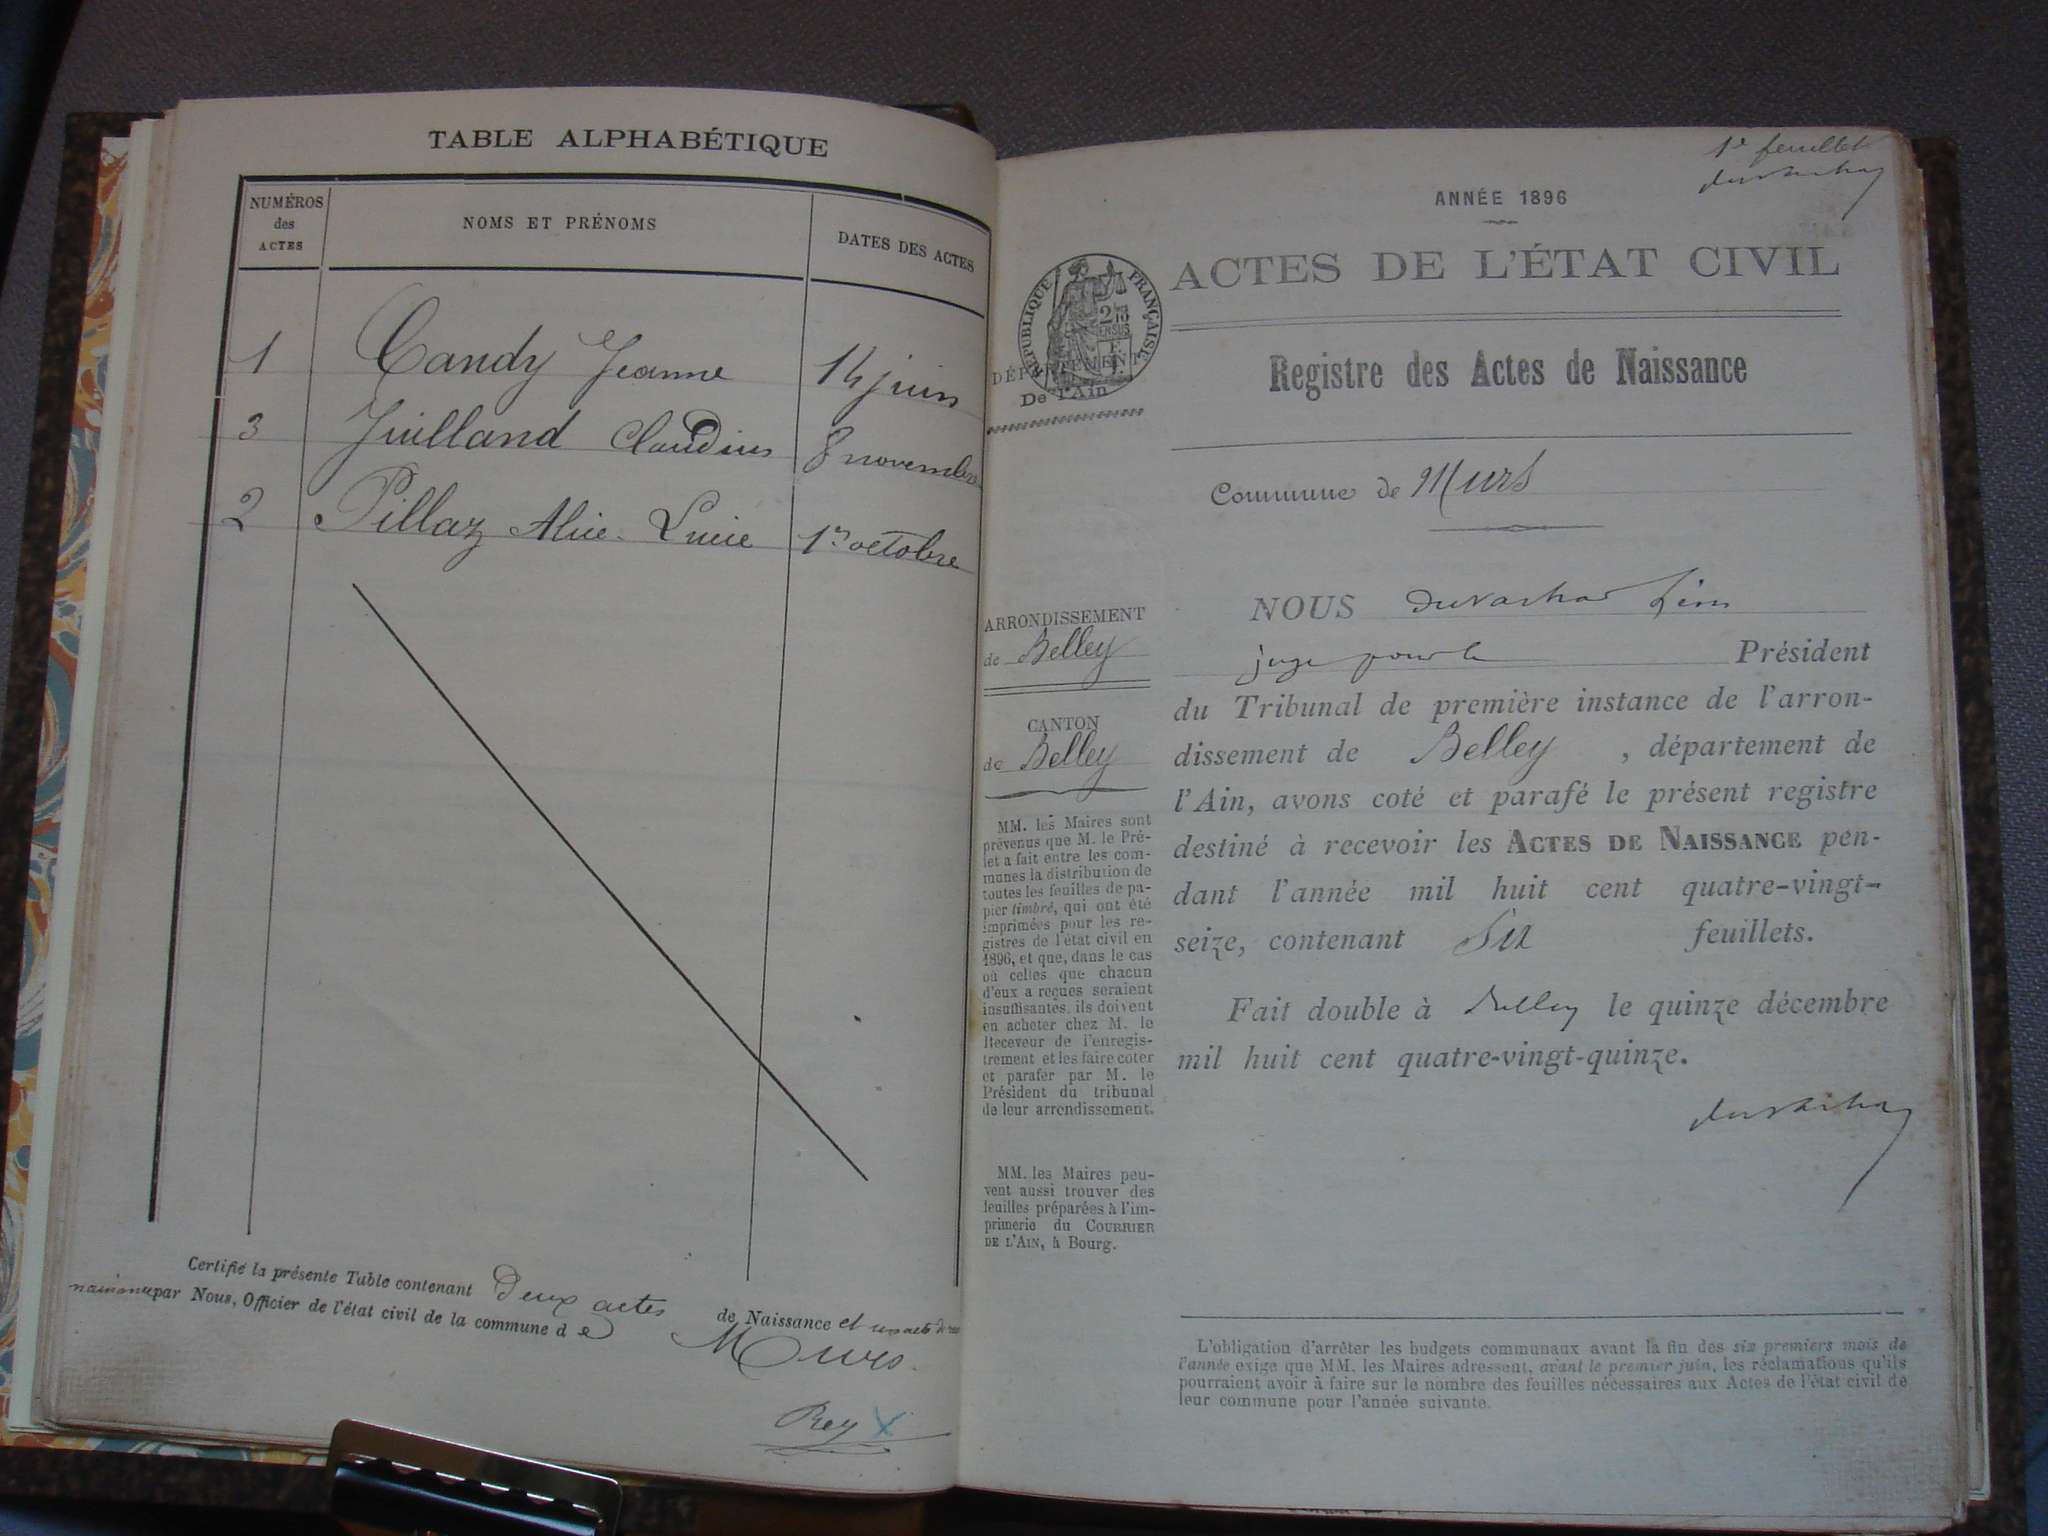 TABLE ALPHABÉTIQUE
NUMÉROS
des
ACTES
NOMS ET PRÉNOMS
DATES DES ACTES
1 Candy Jeanne 14 juin
3 Juilland Claudius 8 novembre
2 Pillaz Alice Lucie 1er octobre
Certifié la présente Table contenant Deux actes de Naissance et un acte de
par Nous, Officier de l'état civil de la commune de Murs
Rey
1er feuillet
ANNÉE 1896
ACTES DE L'ÉTAT CIVIL
RÉPUBLIQUE FRANÇAISE
DÉPARTEMENT
De l'Ain
Registre des Actes de Naissance
Commune de Murs
ARRONDISSEMENT
de Belley
CANTON
de Belley
MM. les Maires sont
prévenus que M. le Pré-
fet a fait entre les com-
munes la distribution de
toutes les feuilles de pa-
pier timbré, qui ont été
imprimées pour les re-
gistres de l'état civil en
1896, et que, dans le cas
où celles que chacun
d'eux a reçues seraient
insuffisantes, ils doivent
en acheter chez M. le
Receveur de l'enregis-
trement et les faire coter
et parafer par M. le
Président du tribunal
de leur arrondissement.
MM. les Maires peu-
vent aussi trouver des
feuilles préparées à l'im-
primerie du COURRIER
DE L'AIN, à Bourg.
NOUS
juge pour le Président
du Tribunal de première instance de l'arron-
dissement de Belley, département de
l'Ain, avons coté et parafé le présent registre
destiné à recevoir les ACTES DE NAISSANCE pen-
dant l'année mil huit cent quatre-vingt-
seize, contenant Six feuillets.
Fait double à Belley le quinze décembre
mil huit cent quatre-vingt-quinze.
L'obligation d'arrêter les budgets communaux avant la fin des six premiers mois de
l'année exige que MM. les Maires adressent, avant le premier juin, les réclamations qu'ils
pourraient avoir à faire sur le nombre des feuilles nécessaires aux Actes de l'état civil de
leur commune pour l'année suivante.